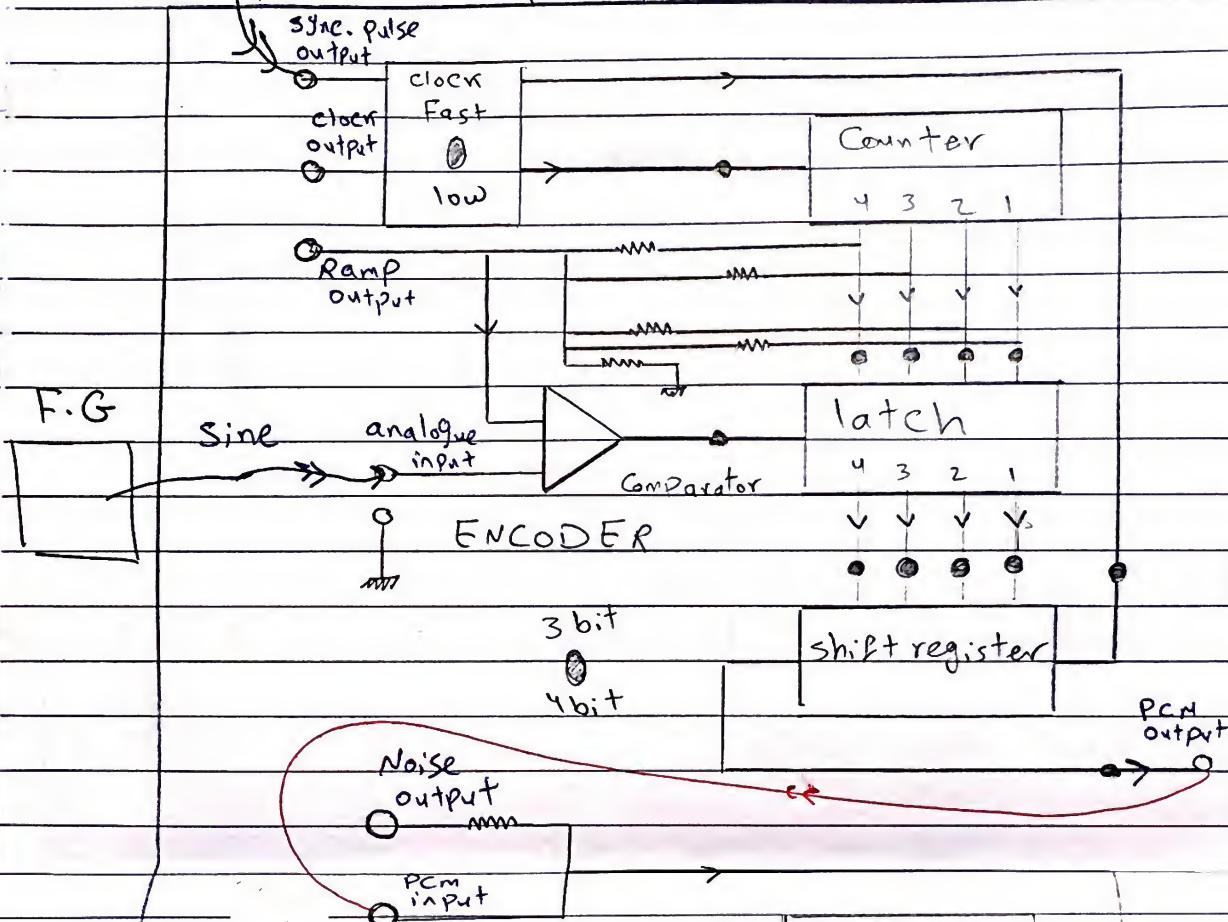 sync. pulse
output
clock
Fast
low
clock
output
Counter
4 3 2 1
Ramp
output
F.G
Sine
analogue
input
Comparator
latch
4 3 2 1
ENCODER
3 bit
4 bit
shift register
PCM
output
Noise
output
PCM
input